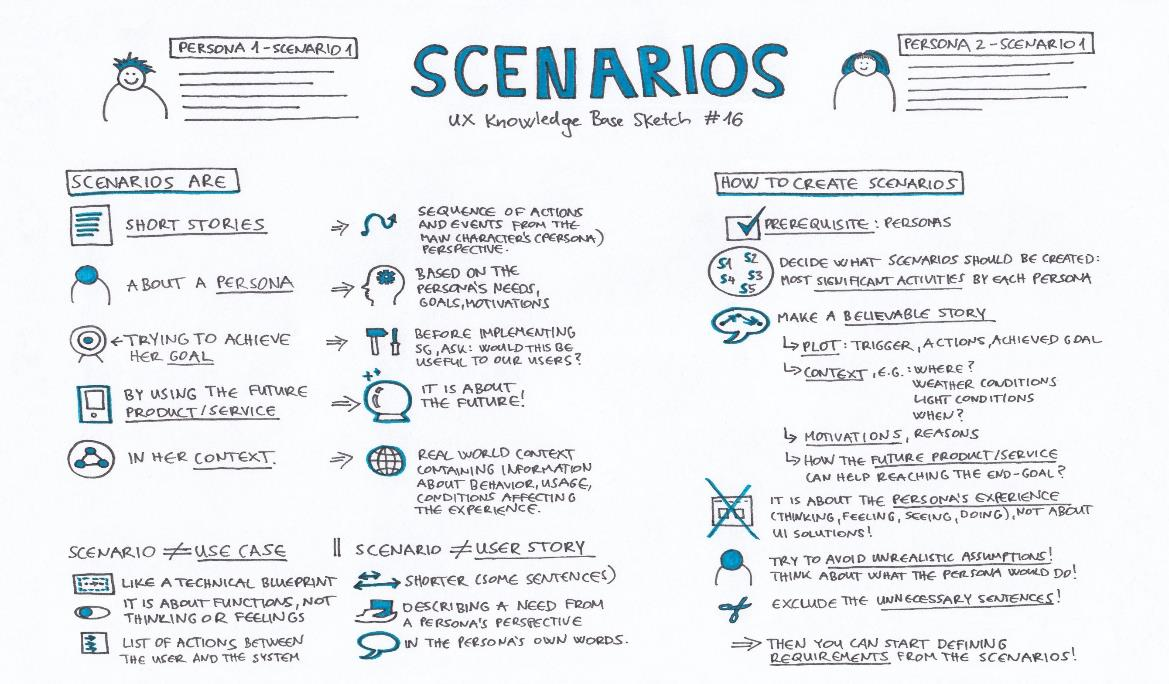 PERSONA 1 - SCENARIO 1
SCENARIOS
UX Knowledge Base Sketch #16
PERSONA 2 - SCENARIO 1
SCENARIOS ARE
SHORT STORIES
SEQUENCE OF ACTIONS
AND EVENTS FROM THE
MAIN CHARACTER'S (PERSONA)
PERSPECTIVE.
ABOUT A PERSONA
BASED ON THE
PERSONA'S NEEDS,
GOALS, MOTIVATIONS
TRYING TO ACHIEVE
HER GOAL
BEFORE IMPLEMENTING
SG, ASK: WOULD THIS BE
USEFUL TO OUR USERS?
BY USING THE FUTURE
PRODUCT/SERVICE
IT IS ABOUT
THE FUTURE!
IN HER CONTEXT.
REAL WORLD CONTEXT
CONTAINING INFORMATION
ABOUT BEHAVIOR, USAGE,
CONDITIONS AFFECTING
THE EXPERIENCE.
SCENARIO ≠ USE CASE
LIKE A TECHNICAL BLUEPRINT
IT IS ABOUT FUNCTIONS, NOT
THINKING OR FEELINGS
LIST OF ACTIONS BETWEEN
THE USER AND THE SYSTEM
SCENARIO ≠ USER STORY
SHORTER (SOME SENTENCES)
DESCRIBING A NEED FROM
A PERSONA'S PERSPECTIVE
IN THE PERSONA'S OWN WORDS.
HOW TO CREATE SCENARIOS
PREREQUISITE: PERSONAS
S1 S2
S4 S3
S5
DECIDE WHAT SCENARIOS SHOULD BE CREATED:
MOST SIGNIFICANT ACTIVITIES BY EACH PERSONA
MAKE A BELIEVABLE STORY
PLOT: TRIGGER, ACTIONS, ACHIEVED GOAL
CONTEXT, E.G.: WHERE?
WEATHER CONDITIONS
LIGHT CONDITIONS
WHEN?
MOTIVATIONS, REASONS
HOW THE FUTURE PRODUCT/SERVICE
CAN HELP REACHING THE END-GOAL?
IT IS ABOUT THE PERSONA'S EXPERIENCE
(THINKING, FEELING, SEEING, DOING), NOT ABOUT
UI SOLUTIONS!
TRY TO AVOID UNREALISTIC ASSUMPTIONS!
THINK ABOUT WHAT THE PERSONA WOULD DO!
EXCLUDE THE UNNECESSARY SENTENCES!
THEN YOU CAN START DEFINING
REQUIREMENTS FROM THE SCENARIOS!